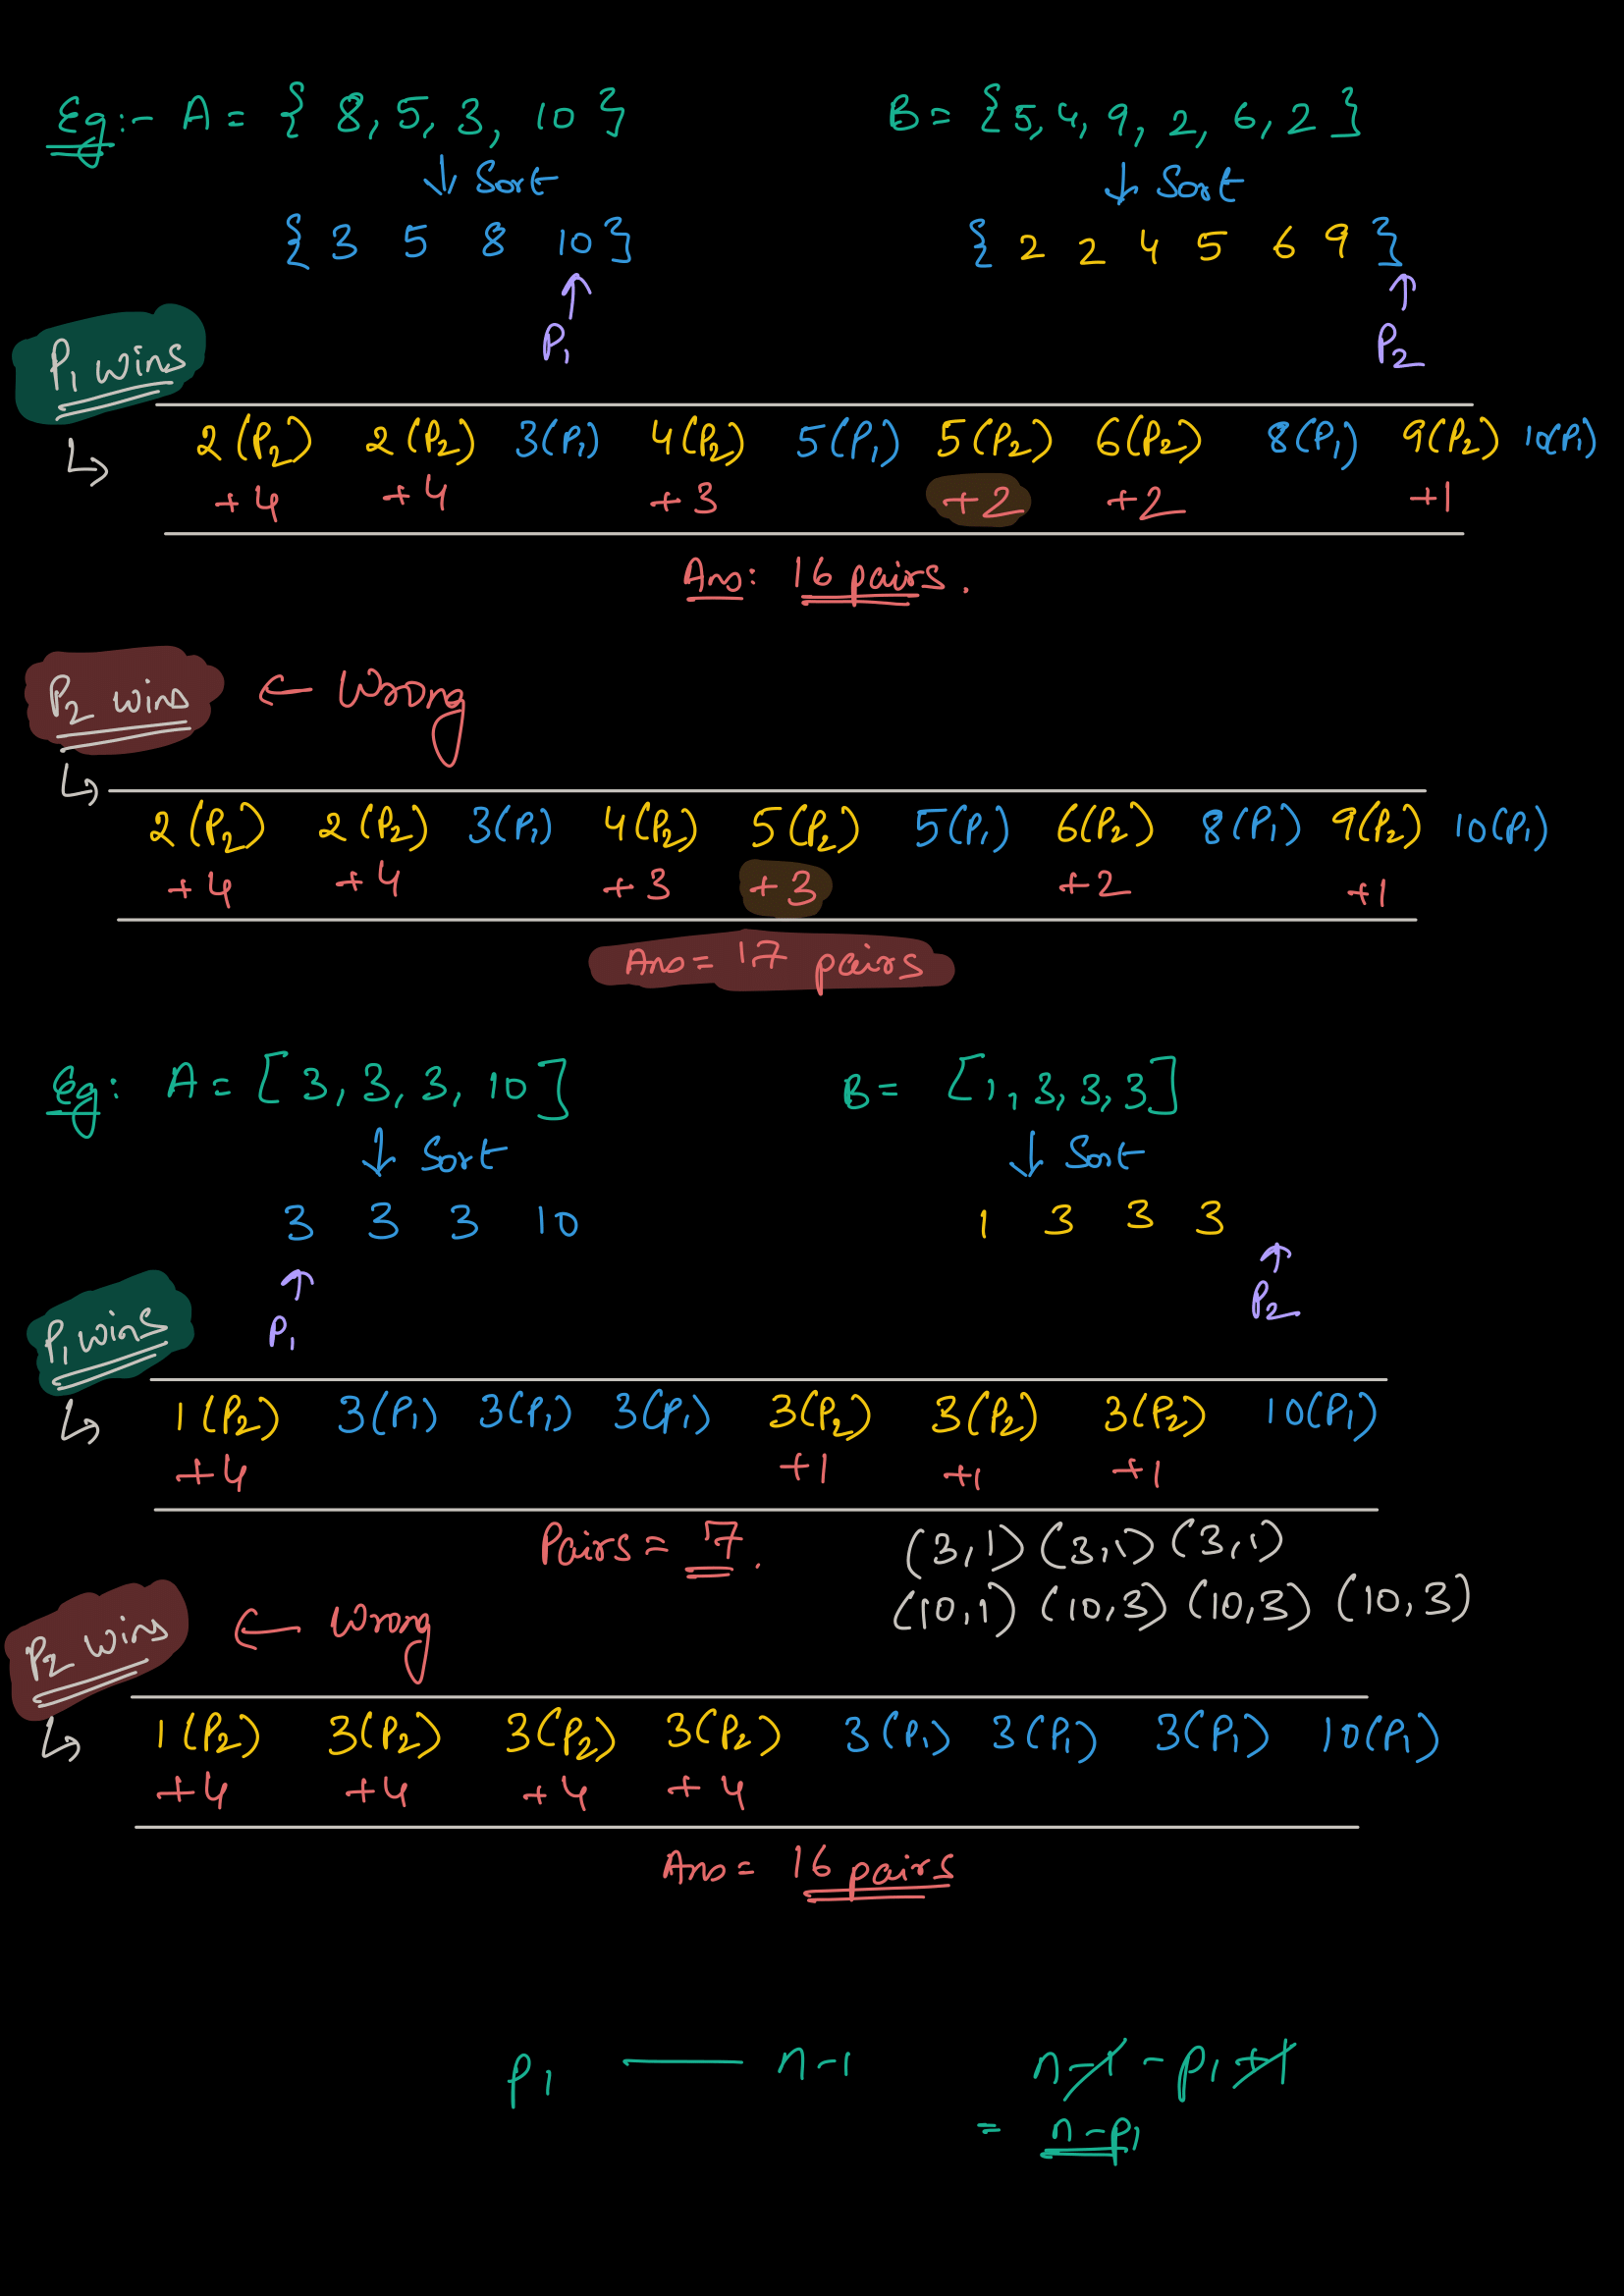 Eg:- A = { 8, 5, 3, 10 } B = {5, 4, 9, 2, 6, 2 }
↓ Sort ↓ Sort
{ 3 5 8 10 } { 2 2 4 5 6 9 }
↑ ↑
P1 P2
P1 wins
↳ 2(P2) 2(P2) 3(P1) 4(P2) 5(P1) 5(P2) 6(P2) 8(P1) 9(P2) 10(P1)
+4 +4 +3 +2 +2 +1
Ans: 16 pairs.
P2 wins ← Wrong
↳ 2(P2) 2(P2) 3(P1) 4(P2) 5(P2) 5(P1) 6(P2) 8(P1) 9(P2) 10(P1)
+4 +4 +3 +3 +2 +1
Ans = 17 pairs
Eg: A = [ 3, 3, 3, 10 ] B = [1, 3, 3, 3]
↓ Sort ↓ Sort
3 3 3 10 1 3 3 3
↑ ↑
P1 P2
P1 wins
↳ 1(P2) 3(P1) 3(P1) 3(P1) 3(P2) 3(P2) 3(P2) 10(P1)
+4 +1 +1 +1
Pairs = 7. (3,1) (3,1) (3,1)
(10,1) (10,3) (10,3) (10,3)
P2 wins ← Wrong
↳ 1(P2) 3(P2) 3(P2) 3(P2) 3(P1) 3(P1) 3(P1) 10(P1)
+4 +4 +4 +4
Ans = 16 pairs
p1 — n-1 n-1-p1+1
= n-p1